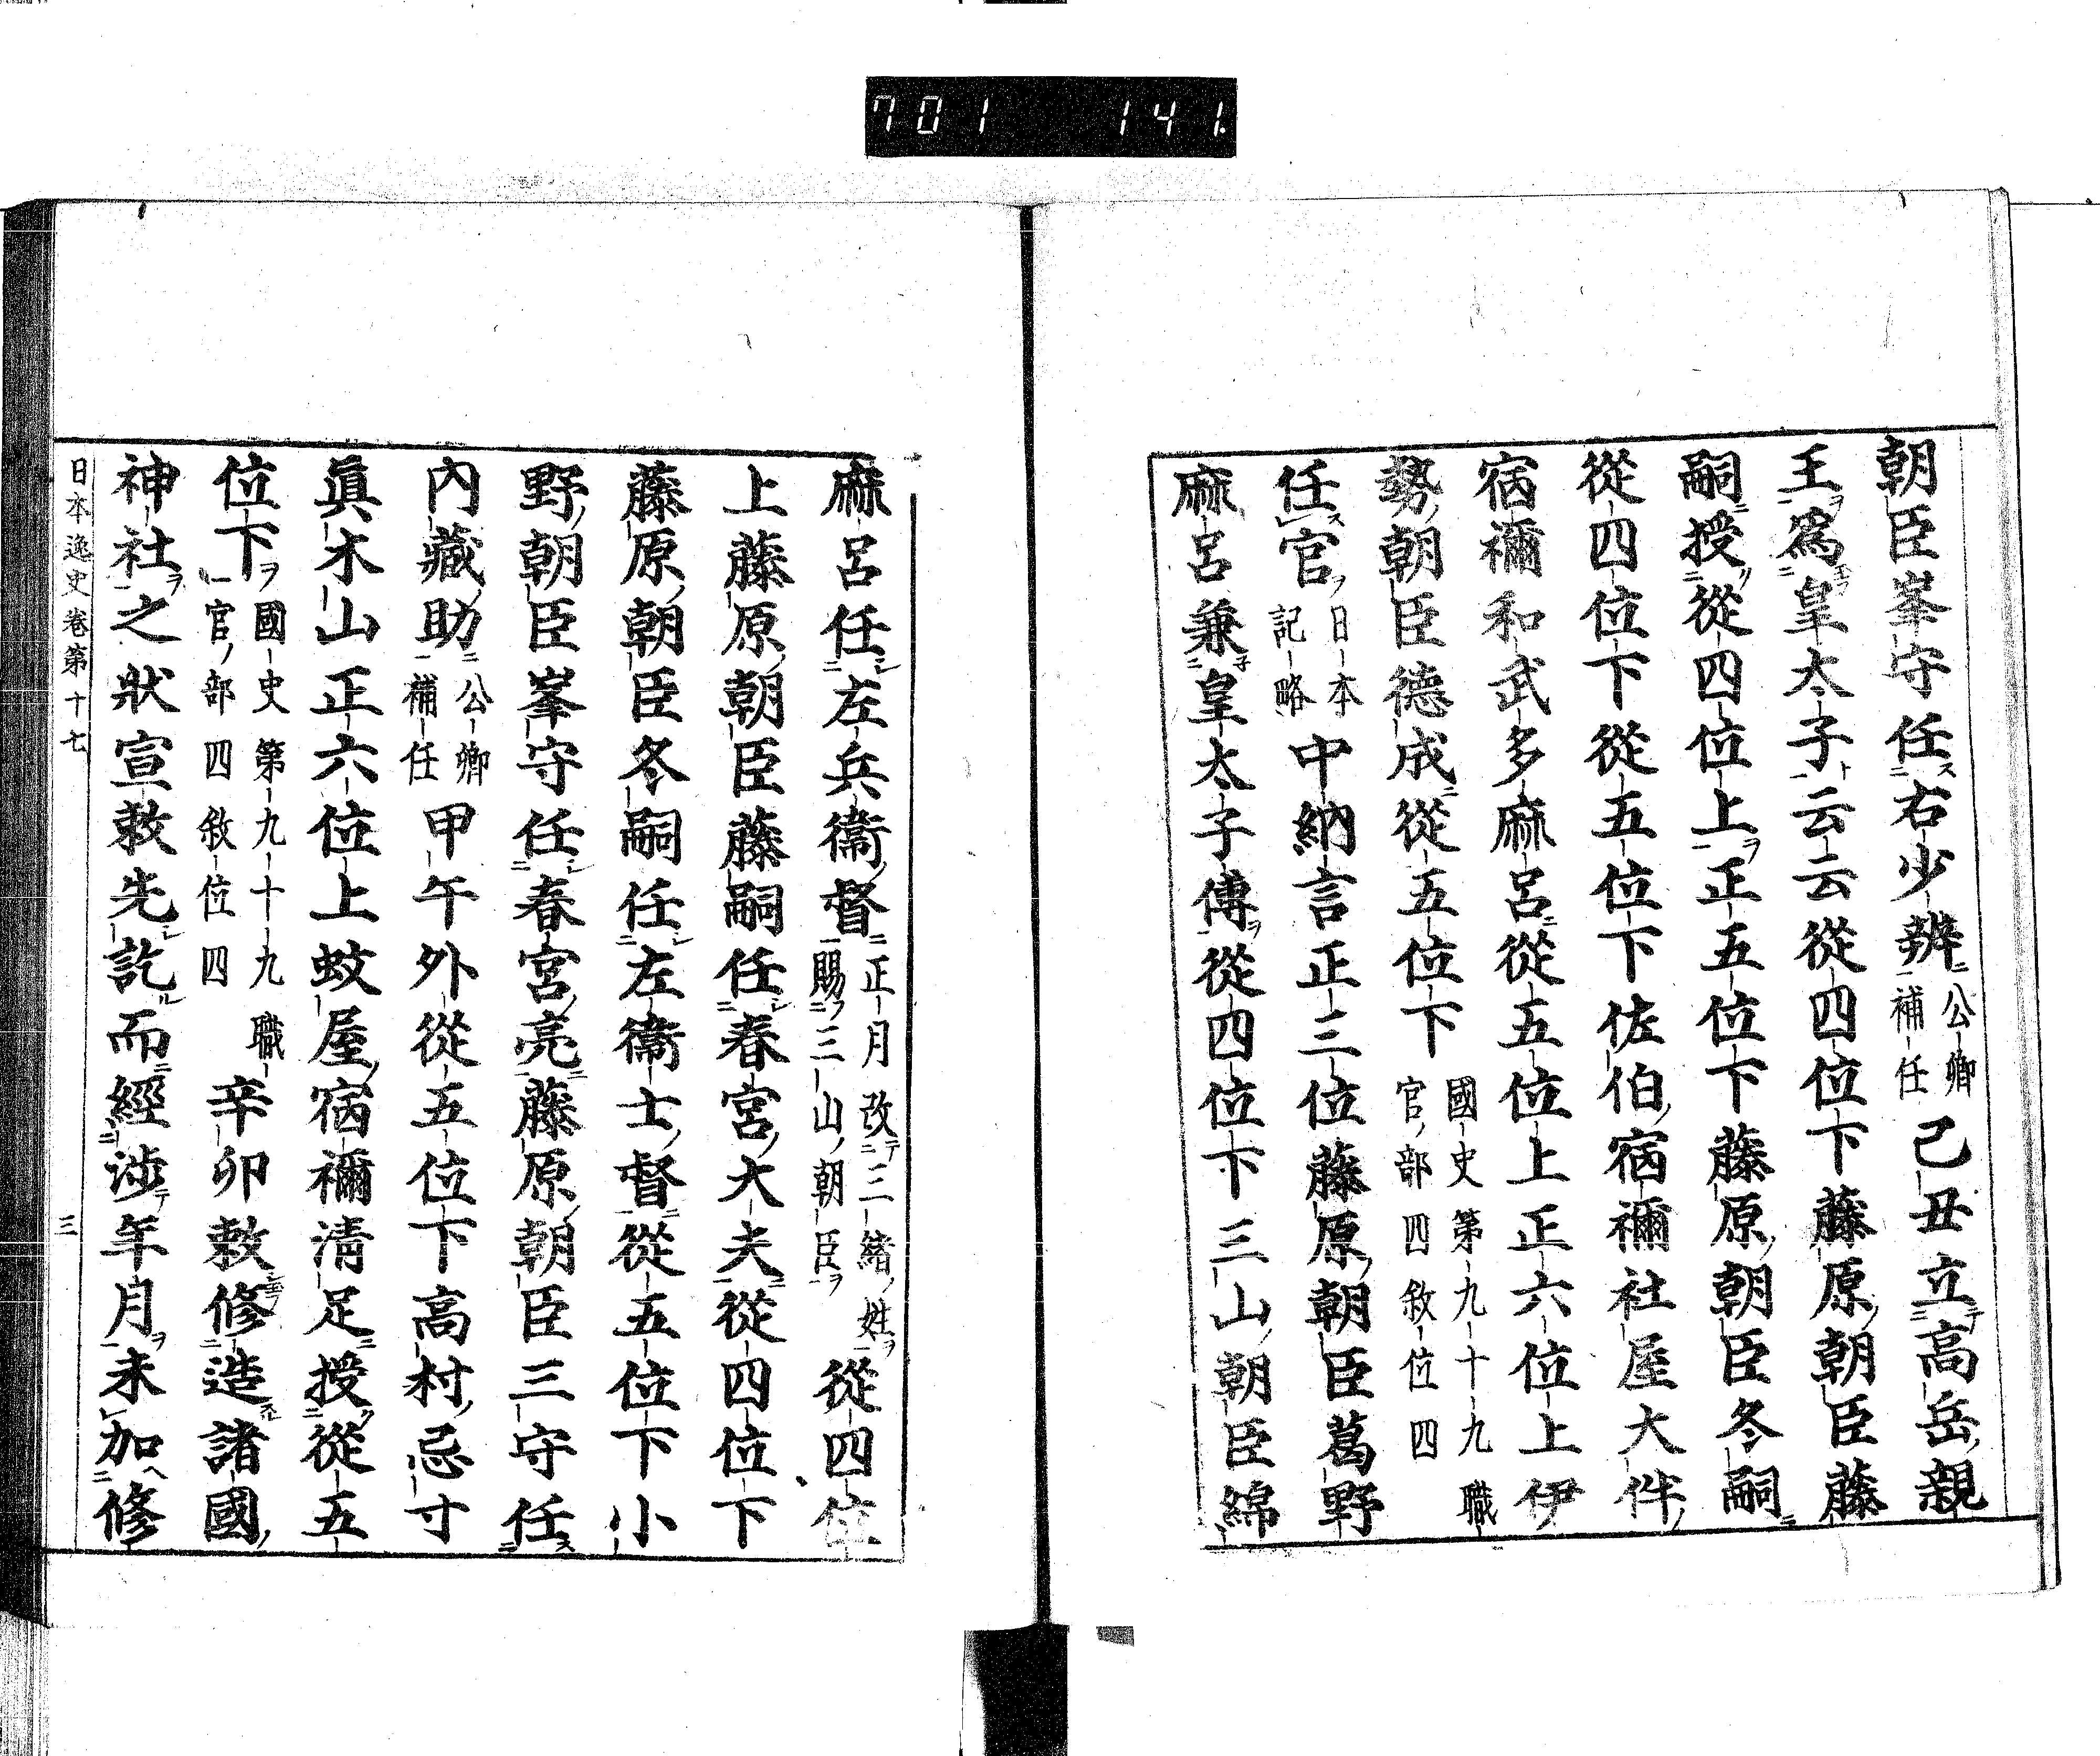 701 141.
朝臣峯守任右少辨公卿補任己丑立高岳親
王爲皇太子云云從四位下藤原朝臣藤
嗣授從四位上正五位下藤原朝臣冬嗣
從四位下從五位下佐伯宿禰社屋大伴
宿禰和武多麻呂從五位上正六位上伊
勢朝臣德成從五位下國史第九十九職官部四敘位四
任官日本記略中納言正三位藤原朝臣葛野
麻呂兼皇太子傅從四位下三山朝臣綿
麻呂任左兵衞督正月改三緒姓賜三山朝臣從四位
上藤原朝臣藤嗣任春宮大夫從四位下
藤原朝臣冬嗣任左衞士督從五位下小
野朝臣峯守任春宮亮藤原朝臣三守任
內藏助公卿補任甲午外從五位下高村忌寸
眞木山正六位上蚊屋宿禰清足授從五
位下國史第九十九職官部四敘位四辛卯敕修造諸國
神社之狀宣敕先訖而經涉年月未加修
日本逸史卷第十七 三